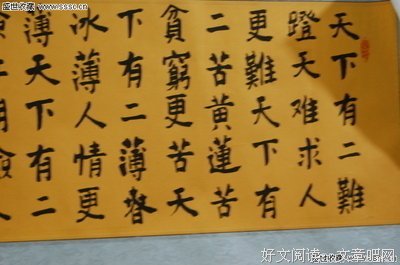 天下有二難
蹬天难求人
更難天下有
二苦黄蓮苦
貧窮更苦天
下有二薄春
冰薄人情更
薄天下有二
盛世收藏 www.sssc.cn
好文阅读-文章吧网